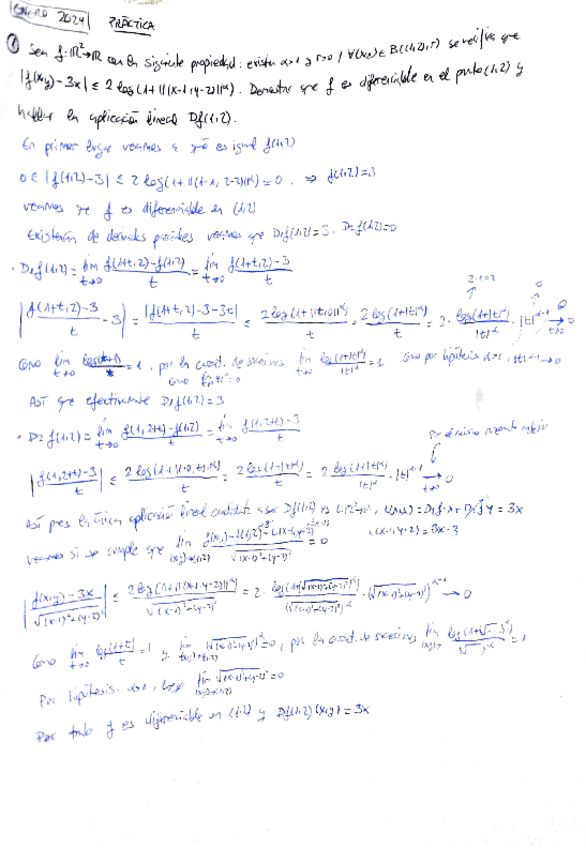 ENERO 2024 PRÁCTICA
① Sea f: ℝ²→ℝ con la siguiente propiedad: existen α>1 y r>0 / ∀(x,y) ∈ B((1,2),r) se verifica que
|f(x,y)-3x| ≤ 2 log(1+||(x-1,y-2)||^α). Demostrar que f es diferenciable en el punto (1,2) y
hallar la aplicación lineal Df(1,2).
En primer lugar veamos a qué es igual f(1,2)
0 ≤ |f(1,2)-3| ≤ 2 log(1+||(1-1, 2-2)||^α) = 0, ⇒ f(1,2)=3
veamos que f es diferenciable en (1,2)
Existencia de derivadas parciales veamos que D₁f(1,2)=3, D₂f(1,2)=0
• D₁f(1,2) = lim t→0 (f(1+t,2)-f(1,2))/t = lim t→0 (f(1+t,2)-3)/t
|(f(1+t,2)-3)/t - 3| = |f(1+t,2)-3-3t|/t ≤ 2 log(1+||(t,0)||^α)/t = 2 log(1+|t|^α)/t = 2 · log(1+|t|^α)/|t|^α · |t|^α-1 → 0 t→0
Como lim t→0 log(t+1)/t = 1, por la caract. de sucesiones lim t→0 log(1+|t|^α)/|t|^α = 1 Como por hipótesis α>1, |t|^α-1 → 0
Así que efectivamente D₁f(1,2)=3
• D₂f(1,2) = lim t→0 (f(1,2+t)-f(1,2))/t = lim t→0 (f(1,2+t)-3)/t
Por el mismo razonamiento
|(f(1,2+t)-3)/t| ≤ 2 log(1+||(0,t)||^α)/t = 2 log(1+|t|^α)/t = 2 log(1+|t|^α)/|t|^α · |t|^α-1 → 0 t→0
Así pues la única aplicación lineal candidata a ser Df(1,2) es L: ℝ²→ℝ, L(x,y) = D₁f·x + D₂f·y = 3x
L(x-1,y-2) = 3x-3
veamos si se cumple que lim (x,y)→(1,2) (f(x,y)-f(1,2)-L(x-1,y-2))/√((x-1)²+(y-2)²) = 0
|(f(x,y)-3x)/√((x-1)²+(y-2)²)| ≤ 2 log(1+||(x-1,y-2)||^α)/√((x-1)²+(y-2)²) = 2 · log(1+(√((x-1)²+(y-2)²))^α)/(√((x-1)²+(y-2)²))^α · (√((x-1)²+(y-2)²))^α-1 → 0
Como lim t→0 log(1+t)/t = 1 y lim (x,y)→(1,2) (√((x-1)²+(y-2)²))^α = 0, por la caract. de sucesiones lim log(1+√ ^α)/√ ^α = 1
Por hipótesis α>1, luego lim (x,y)→(1,2) √((x-1)²+(y-2)²) = 0
Por tanto f es diferenciable en (1,2) y Df(1,2)(x,y) = 3x